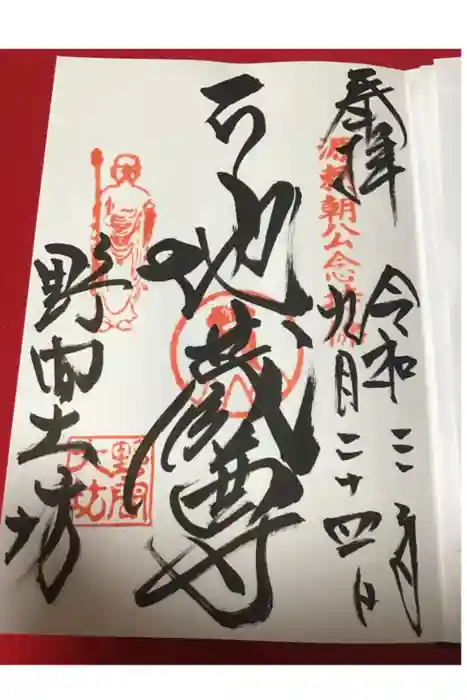 奉拝
源頼朝公念持佛
令和
年
九月二十四日
地蔵尊
野間大坊
野間
大坊